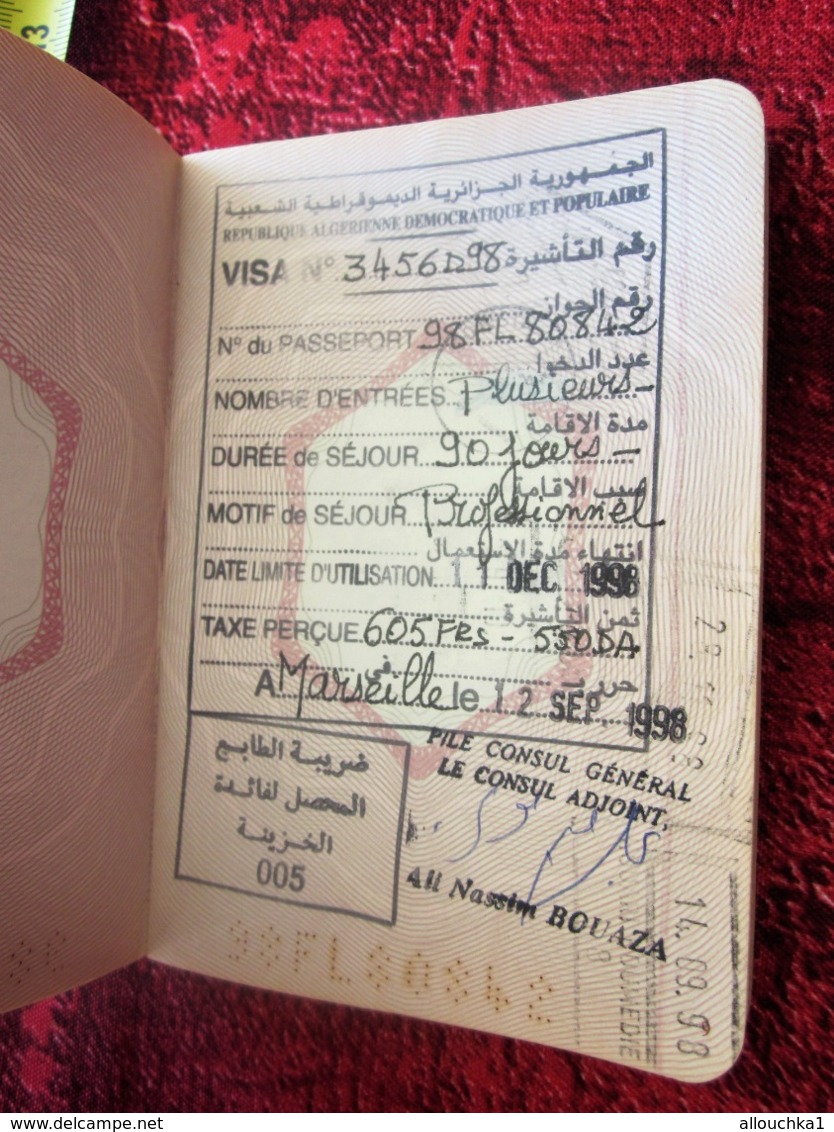 الجمهورية الجزائرية الديموقراطية الشعبية
REPUBLIQUE ALGERIENNE DEMOCRATIQUE ET POPULAIRE
VISA N° 3456D98 رقم التأشيرة
رقم الجواز
N° du PASSEPORT 98FL80842
عدد الدخول
NOMBRE D'ENTRÉES Plusieurs -
مدة الاقامة
DURÉE de SÉJOUR 90 jours -
سبب الاقامة
MOTIF de SÉJOUR Professionnel
انتهاء مدة الاستعمال
DATE LIMITE D'UTILISATION 11 DEC 1998
ثمن التأشيرة
TAXE PERÇUE 605 FRs - 550 DA
حرر بـ في
A Marseille le 12 SEP. 1998
P/LE CONSUL GÉNÉRAL
LE CONSUL ADJOINT,
Ali Nassim BOUAZA
ضريبة الطابع
المحصل لفائدة
الخزينة
005
98FL80842
14.09.98
13
delcampe.net
allouchka1